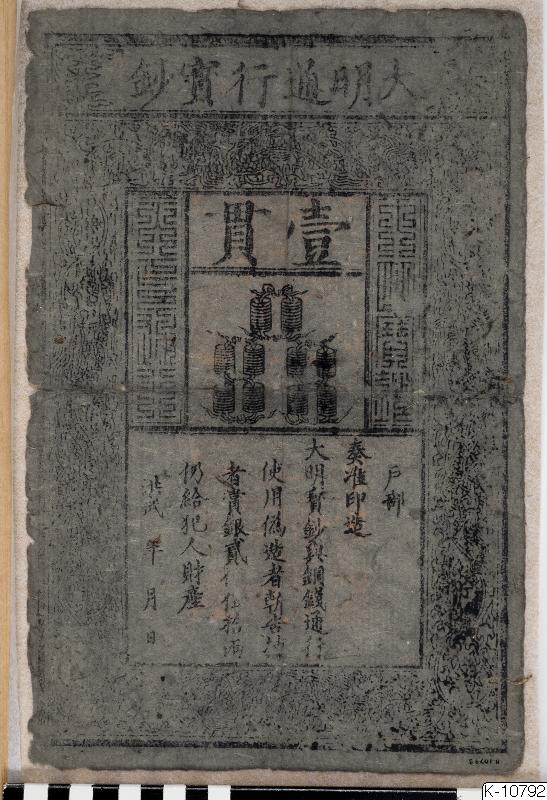 大明通行寶鈔
壹貫
戶部
奏准印造
大明寶鈔與銅錢通行
使用偽造者斬告捕
者賞銀貳伯伍拾兩
仍給犯人財產
洪武 年 月 日
K-10792